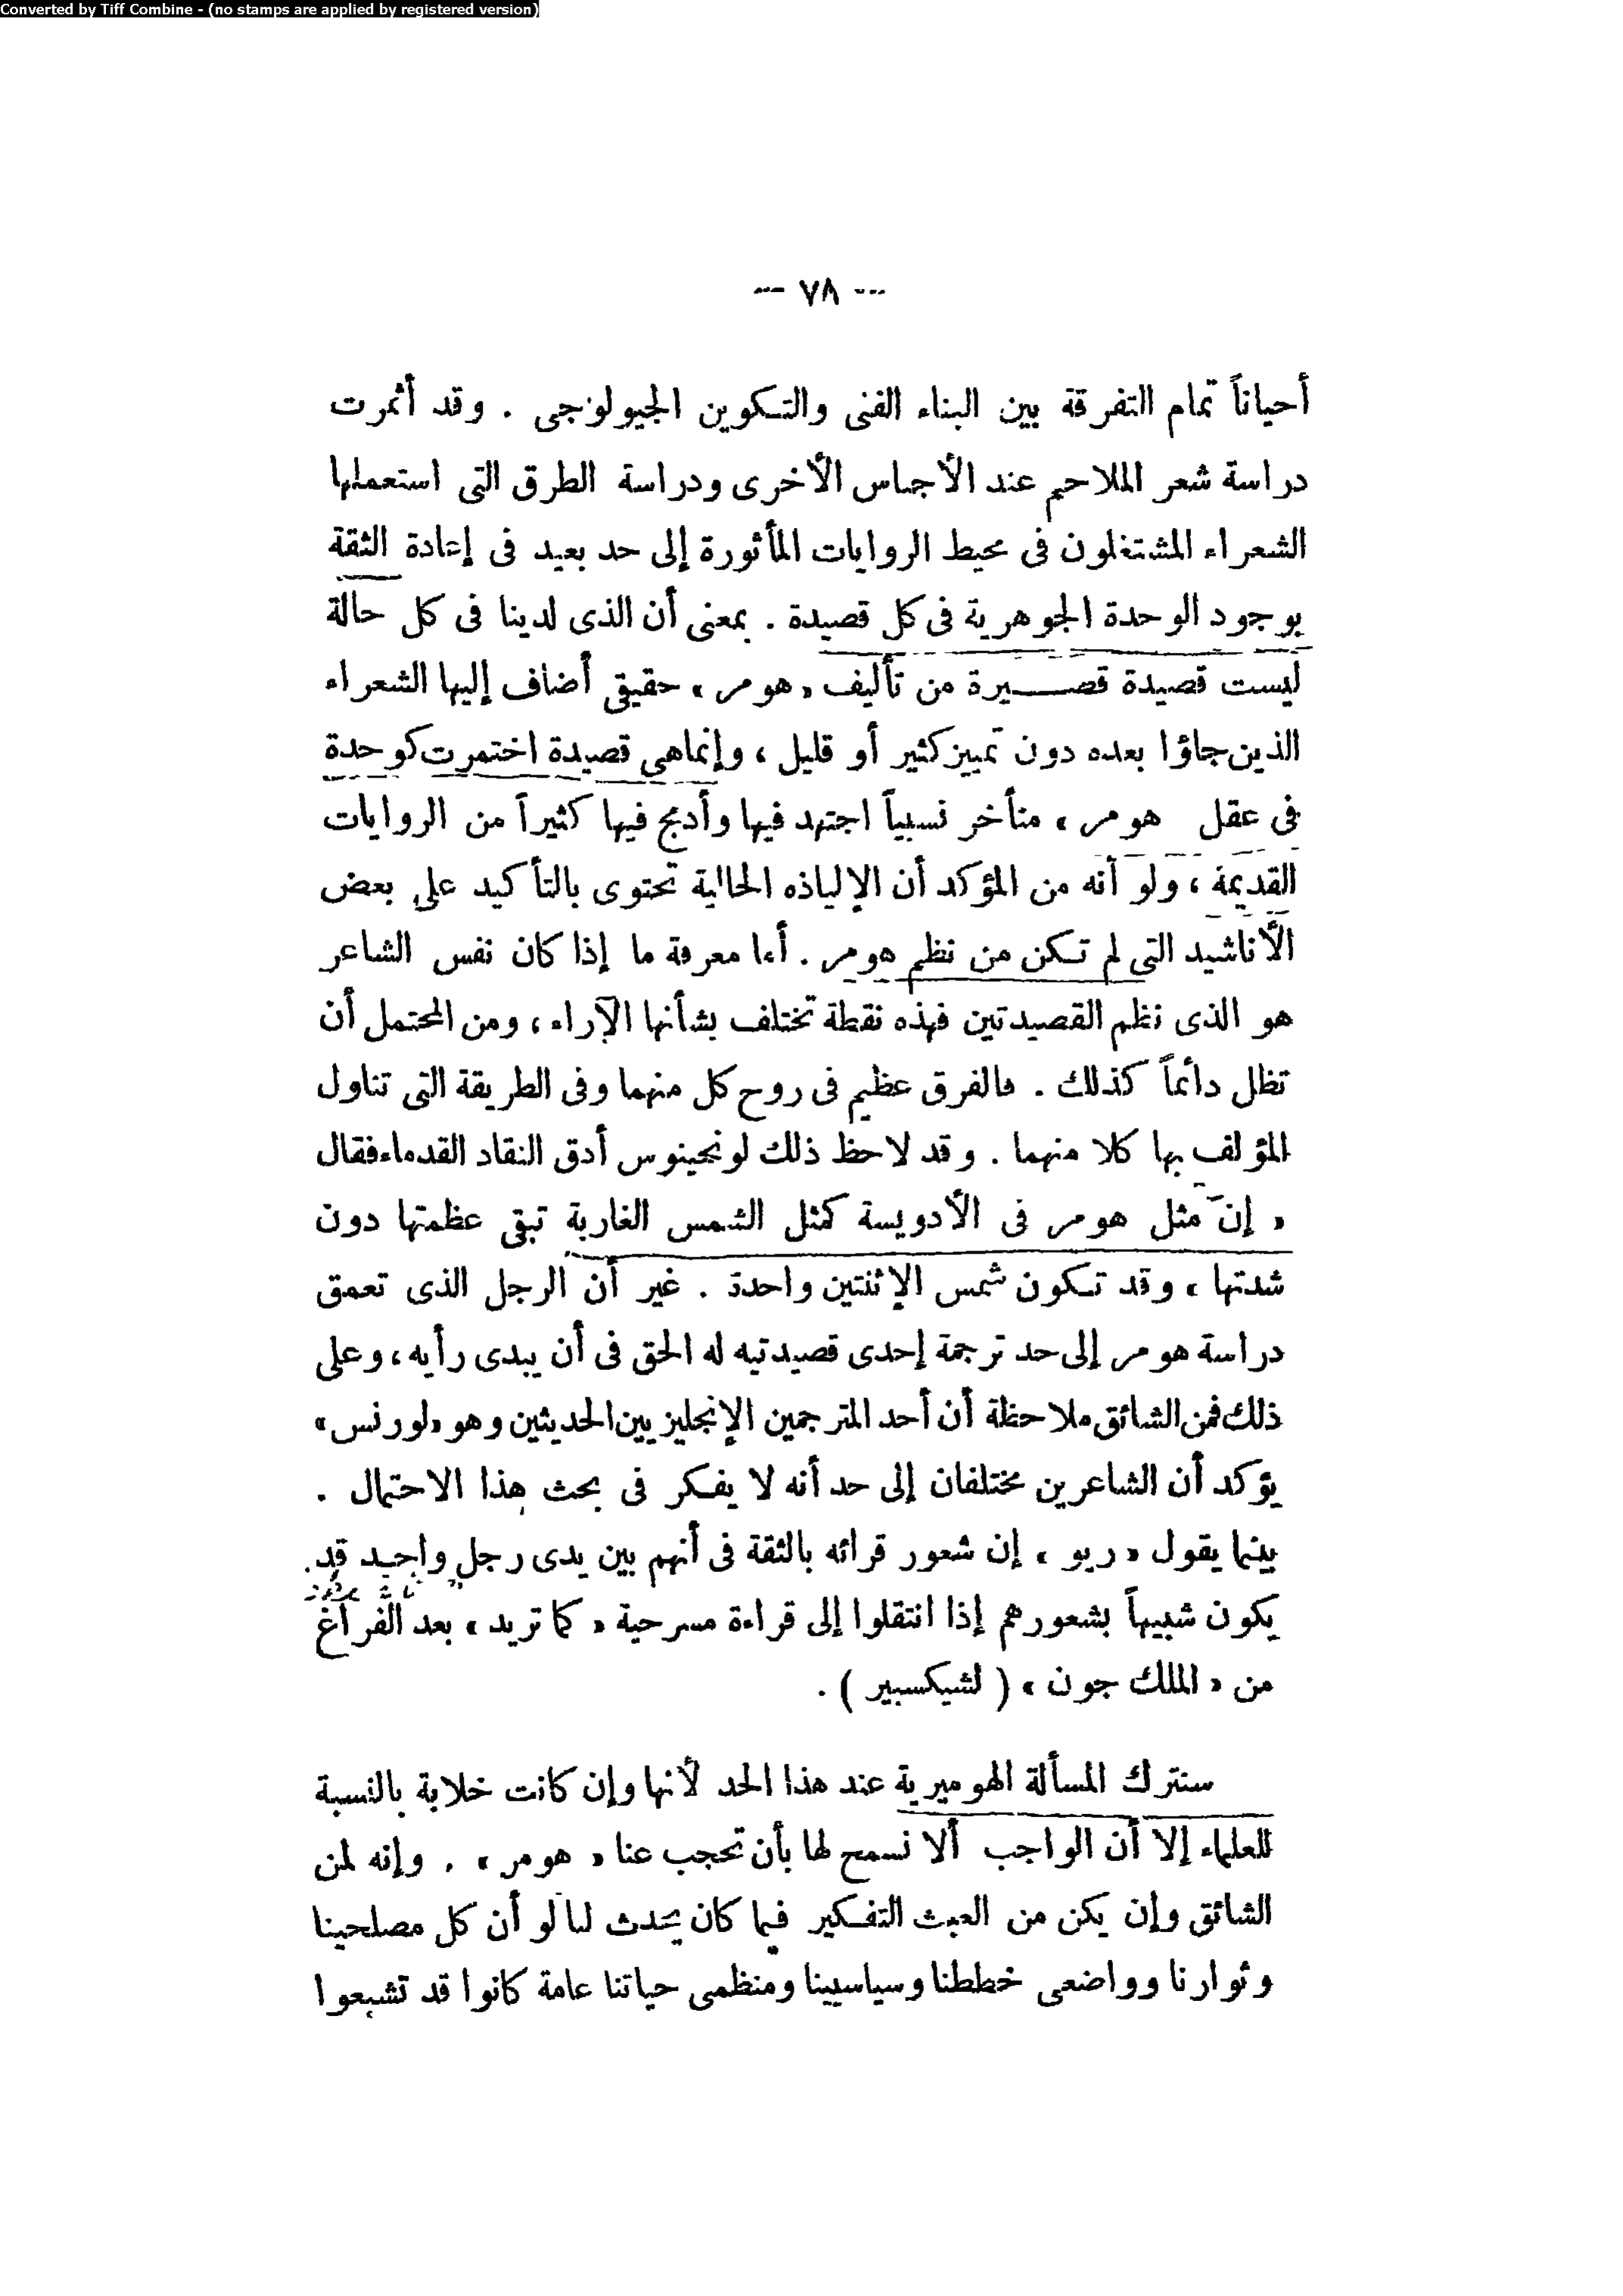 Converted by Tiff Combine - (no stamps are applied by registered version)
--- ٧٨ ---
أحياناً تمام التفرقة بين البناء الفنى والتكوين الجيولوجى . وقد أثمرت
دراسة شعر الملاحم عند الأجناس الأخرى ودراسة الطرق التى استعملها
الشعراء المشتغلون فى محيط الروايات المأثورة إلى حد بعيد فى إعادة الثقة
بوجود الوحدة الجوهرية فى كل قصيدة . بمعنى أن الذى لدينا فى كل حالة
ليست قصيدة قصيرة من تأليف « هومر » حقيقى أضاف إليها الشعراء
الذين جاؤا بعده دون تمييز كثير أو قليل ، وإنما هى قصيدة اختمرت كوحدة
فى عقل هومر » متأخر نسبياً اجتهد فيها وأدمج فيها كثيراً من الروايات
القديمة ، ولو أنه من المؤكد أن الإلياذه الحالية تحتوى بالتأكيد على بعض
الأناشيد التى لم تكن من نظم هومر . أما معرفة ما إذا كان نفس الشاعر
هو الذى نظم القصيدتين فهذه نقطة تختلف بشأنها الآراء ، ومن المحتمل أن
تظل دائماً كذلك . فالفرق عظيم فى روح كل منهما وفى الطريقة التى تناول
المؤلف بها كلا منهما . وقد لاحظ ذلك لونجينوس أدق النقاد القدماء فقال
« إن مثل هومر فى الأدويسة كمثل الشمس الغاربة تبقى عظمتها دون
شدتها » وقد تكون شمس الإثنتين واحدة . غير أن الرجل الذى تعمق
دراسة هومر إلى حد ترجمة إحدى قصيدتيه له الحق فى أن يبدى رأيه ، وعلى
ذلك فمن الشائق ملاحظة أن أحد المترجمين الإنجليز بين الحديثين وهو « لورنس »
يؤكد أن الشاعرين مختلفان إلى حد أنه لا يفكر فى بحث هذا الاحتمال .
بينما يقول « ريو » إن شعور قرائه بالثقة فى أنهم بين يدى رجل واحد قد
يكون شبيهاً بشعورهم إذا انتقلوا إلى قراءة مسرحية « كما تريد » بعد الفراغ
من « الملك جون » ( لشيكسبير ) .
سنترك المسألة الهوميرية عند هذا الحد لأنها وإن كانت خلابة بالنسبة
للعلماء إلا أن الواجب ألا نسمح لها بأن تحجب عنا « هومر » . وإنه لمن
الشائق وإن يكن من العبث التفكير فيما كان يحدث لنا لو أن كل مصلحينا
وثوارنا وواضعى خططنا وسياسيينا ومنظمى حياتنا عامة كانوا قد تشبعوا